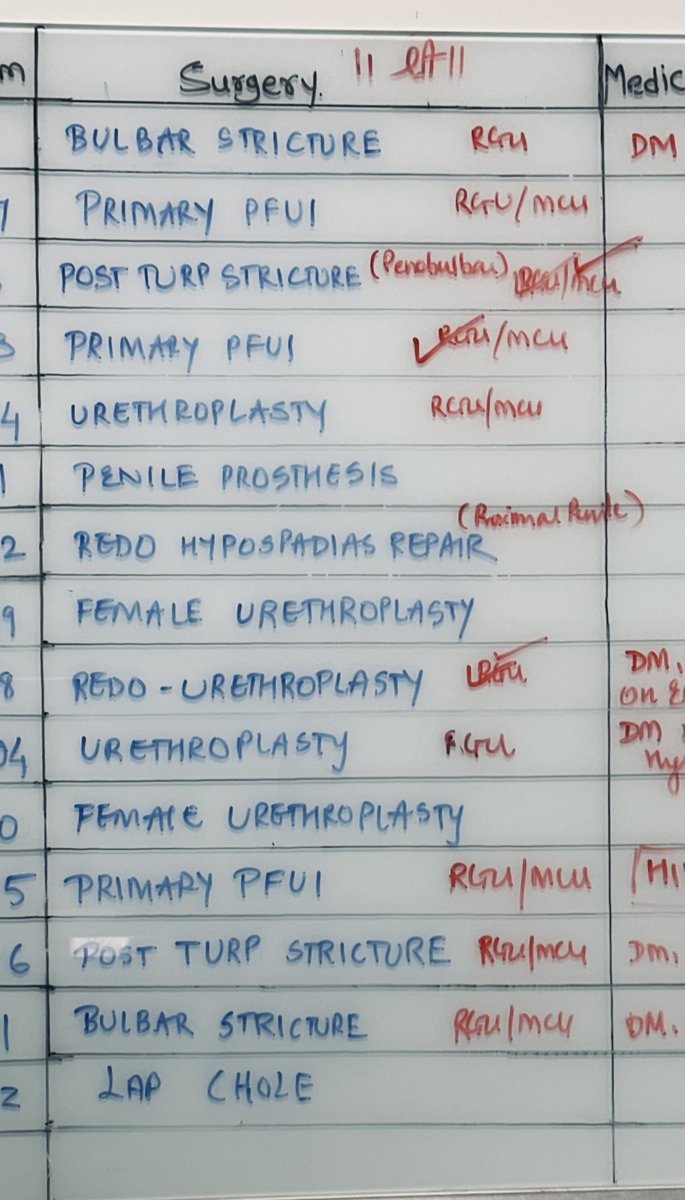 m Surgery. Medic
BULBAR STRICTURE RGU DM
7 PRIMARY PFUI RGU/MCU
POST TURP STRICTURE (Penobulbar) RGU/MCU
3 PRIMARY PFUI RGU/MCU
4 URETHROPLASTY RGU/MCU
1 PENILE PROSTHESIS
(Proximal Penile)
2 REDO HYPOSPADIAS REPAIR
9 FEMALE URETHROPLASTY
8 REDO-URETHROPLASTY RGU DM,
on
04 URETHROPLASTY RGU DM
Hy
0 FEMALE URETHROPLASTY
5 PRIMARY PFUI RGU/MCU HI
6 POST TURP STRICTURE RGU/MCU DM,
1 BULBAR STRICTURE RGU/MCU DM.
2 LAP CHOLE